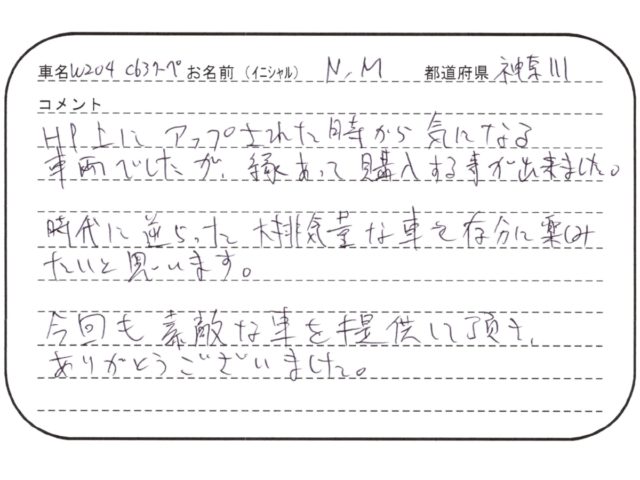 車名W204 C63クーペ お名前（イニシャル） N.M 都道府県 神奈川
コメント
HP上にアップされた時から気になる
車両でしたが、縁あって購入する事が出来ました。
時代に逆らった大排気量な車を存分に楽しみ
たいと思います。
今回も素敵な車を提供して頂き、
ありがとうございました。